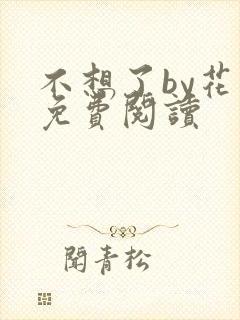 不想了by花
免費閱讀
聞青松